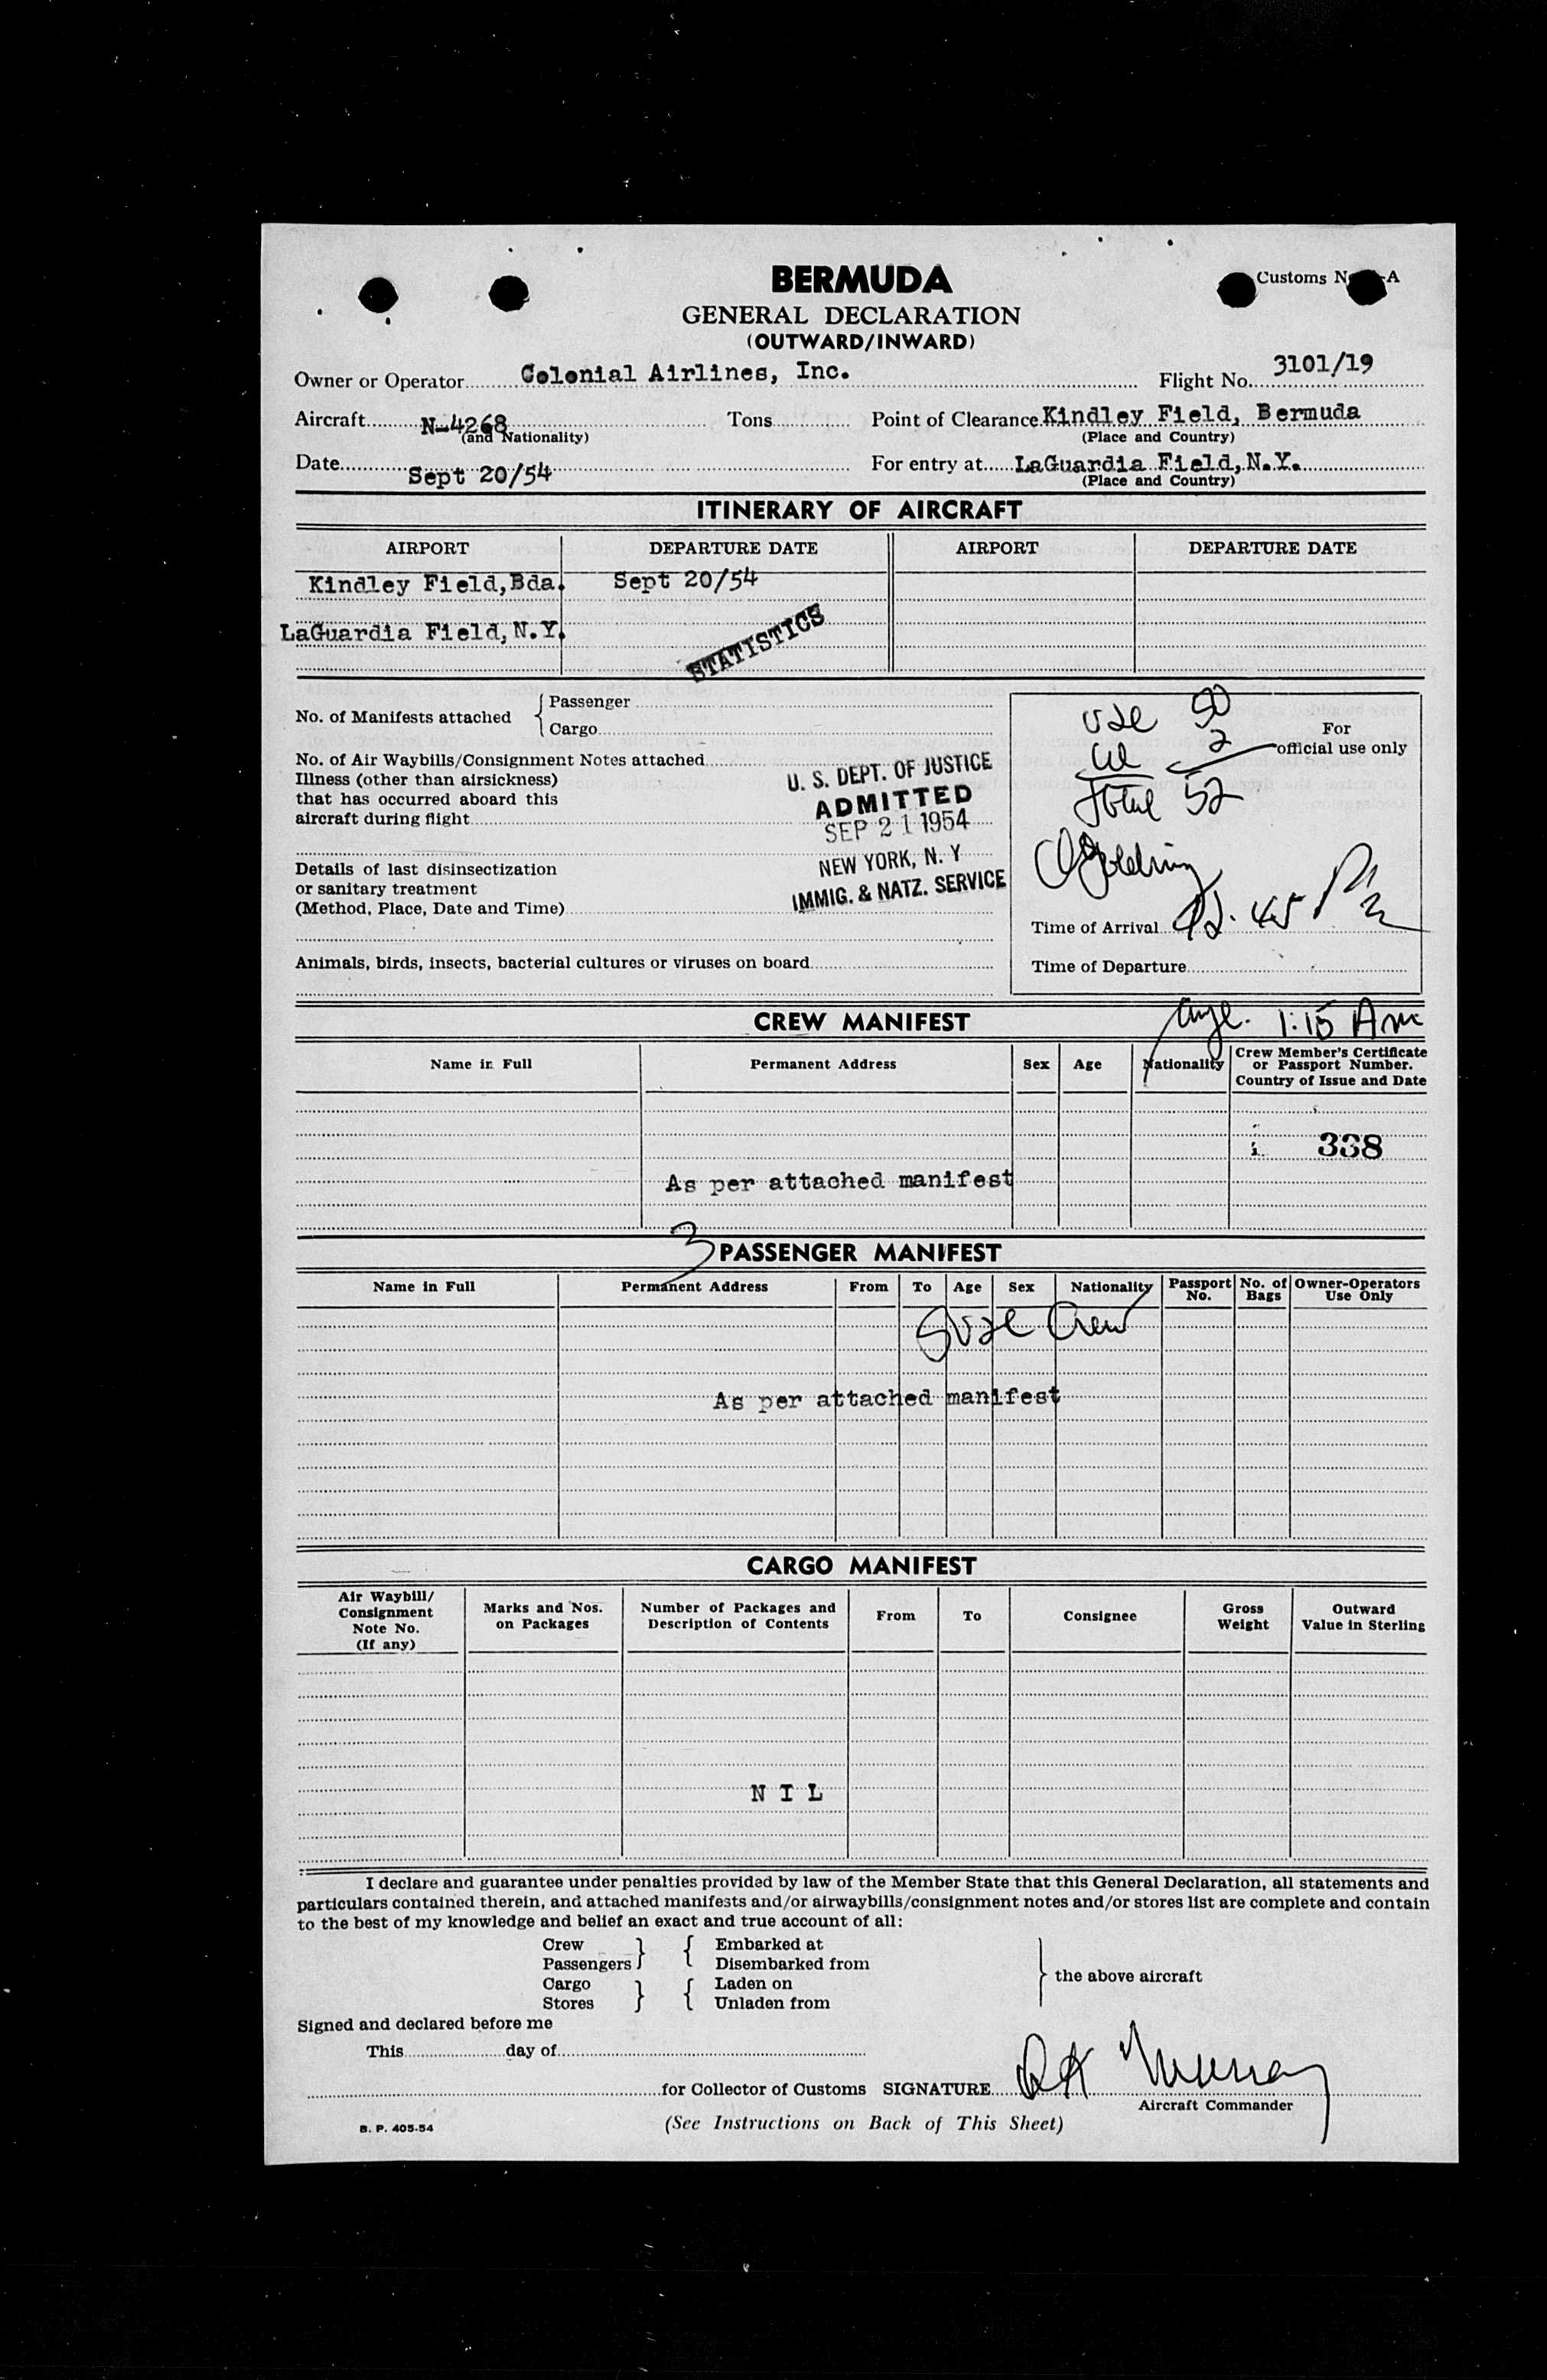 BERMUDA
Customs N A
GENERAL DECLARATION
(OUTWARD/INWARD)
Owner or Operator Colonial Airlines, Inc. Flight No. 3101/19
Aircraft N-4268 Tons Point of Clearance Kindley Field, Bermuda
(and Nationality) (Place and Country)
Date Sept 20/54 For entry at LaGuardia Field, N.Y.
(Place and Country)
ITINERARY OF AIRCRAFT
AIRPORT DEPARTURE DATE AIRPORT DEPARTURE DATE
Kindley Field, Bda. Sept 20/54
LaGuardia Field, N.Y.
STATISTICS
No. of Manifests attached { Passenger
Cargo
No. of Air Waybills/Consignment Notes attached
Illness (other than airsickness)
that has occurred aboard this
aircraft during flight
Details of last disinsectization
or sanitary treatment
(Method, Place, Date and Time)
Animals, birds, insects, bacterial cultures or viruses on board
U. S. DEPT. OF JUSTICE
ADMITTED
SEP 21 1954
NEW YORK, N. Y
IMMIG. & NATZ. SERVICE
50
2
Total 52
For
official use only
Time of Arrival 12.45 Pm
Time of Departure
1:15 Am
CREW MANIFEST
Name in Full Permanent Address Sex Age Nationality Crew Member's Certificate
or Passport Number.
Country of Issue and Date
338
As per attached manifest
3
PASSENGER MANIFEST
Name in Full Permanent Address From To Age Sex Nationality Passport No. No. of Bags Owner-Operators Use Only
Crew
As per attached manifest
CARGO MANIFEST
Air Waybill/
Consignment
Note No.
(If any)
Marks and Nos.
on Packages
Number of Packages and
Description of Contents
From To Consignee
Gross
Weight
Outward
Value in Sterling
N I L
I declare and guarantee under penalties provided by law of the Member State that this General Declaration, all statements and
particulars contained therein, and attached manifests and/or airwaybills/consignment notes and/or stores list are complete and contain
to the best of my knowledge and belief an exact and true account of all:
Crew } { Embarked at
Passengers Disembarked from
Cargo } { Laden on
Stores Unladen from
} the above aircraft
Signed and declared before me
This day of
for Collector of Customs SIGNATURE Murray
Aircraft Commander
B. P. 405-54
(See Instructions on Back of This Sheet)